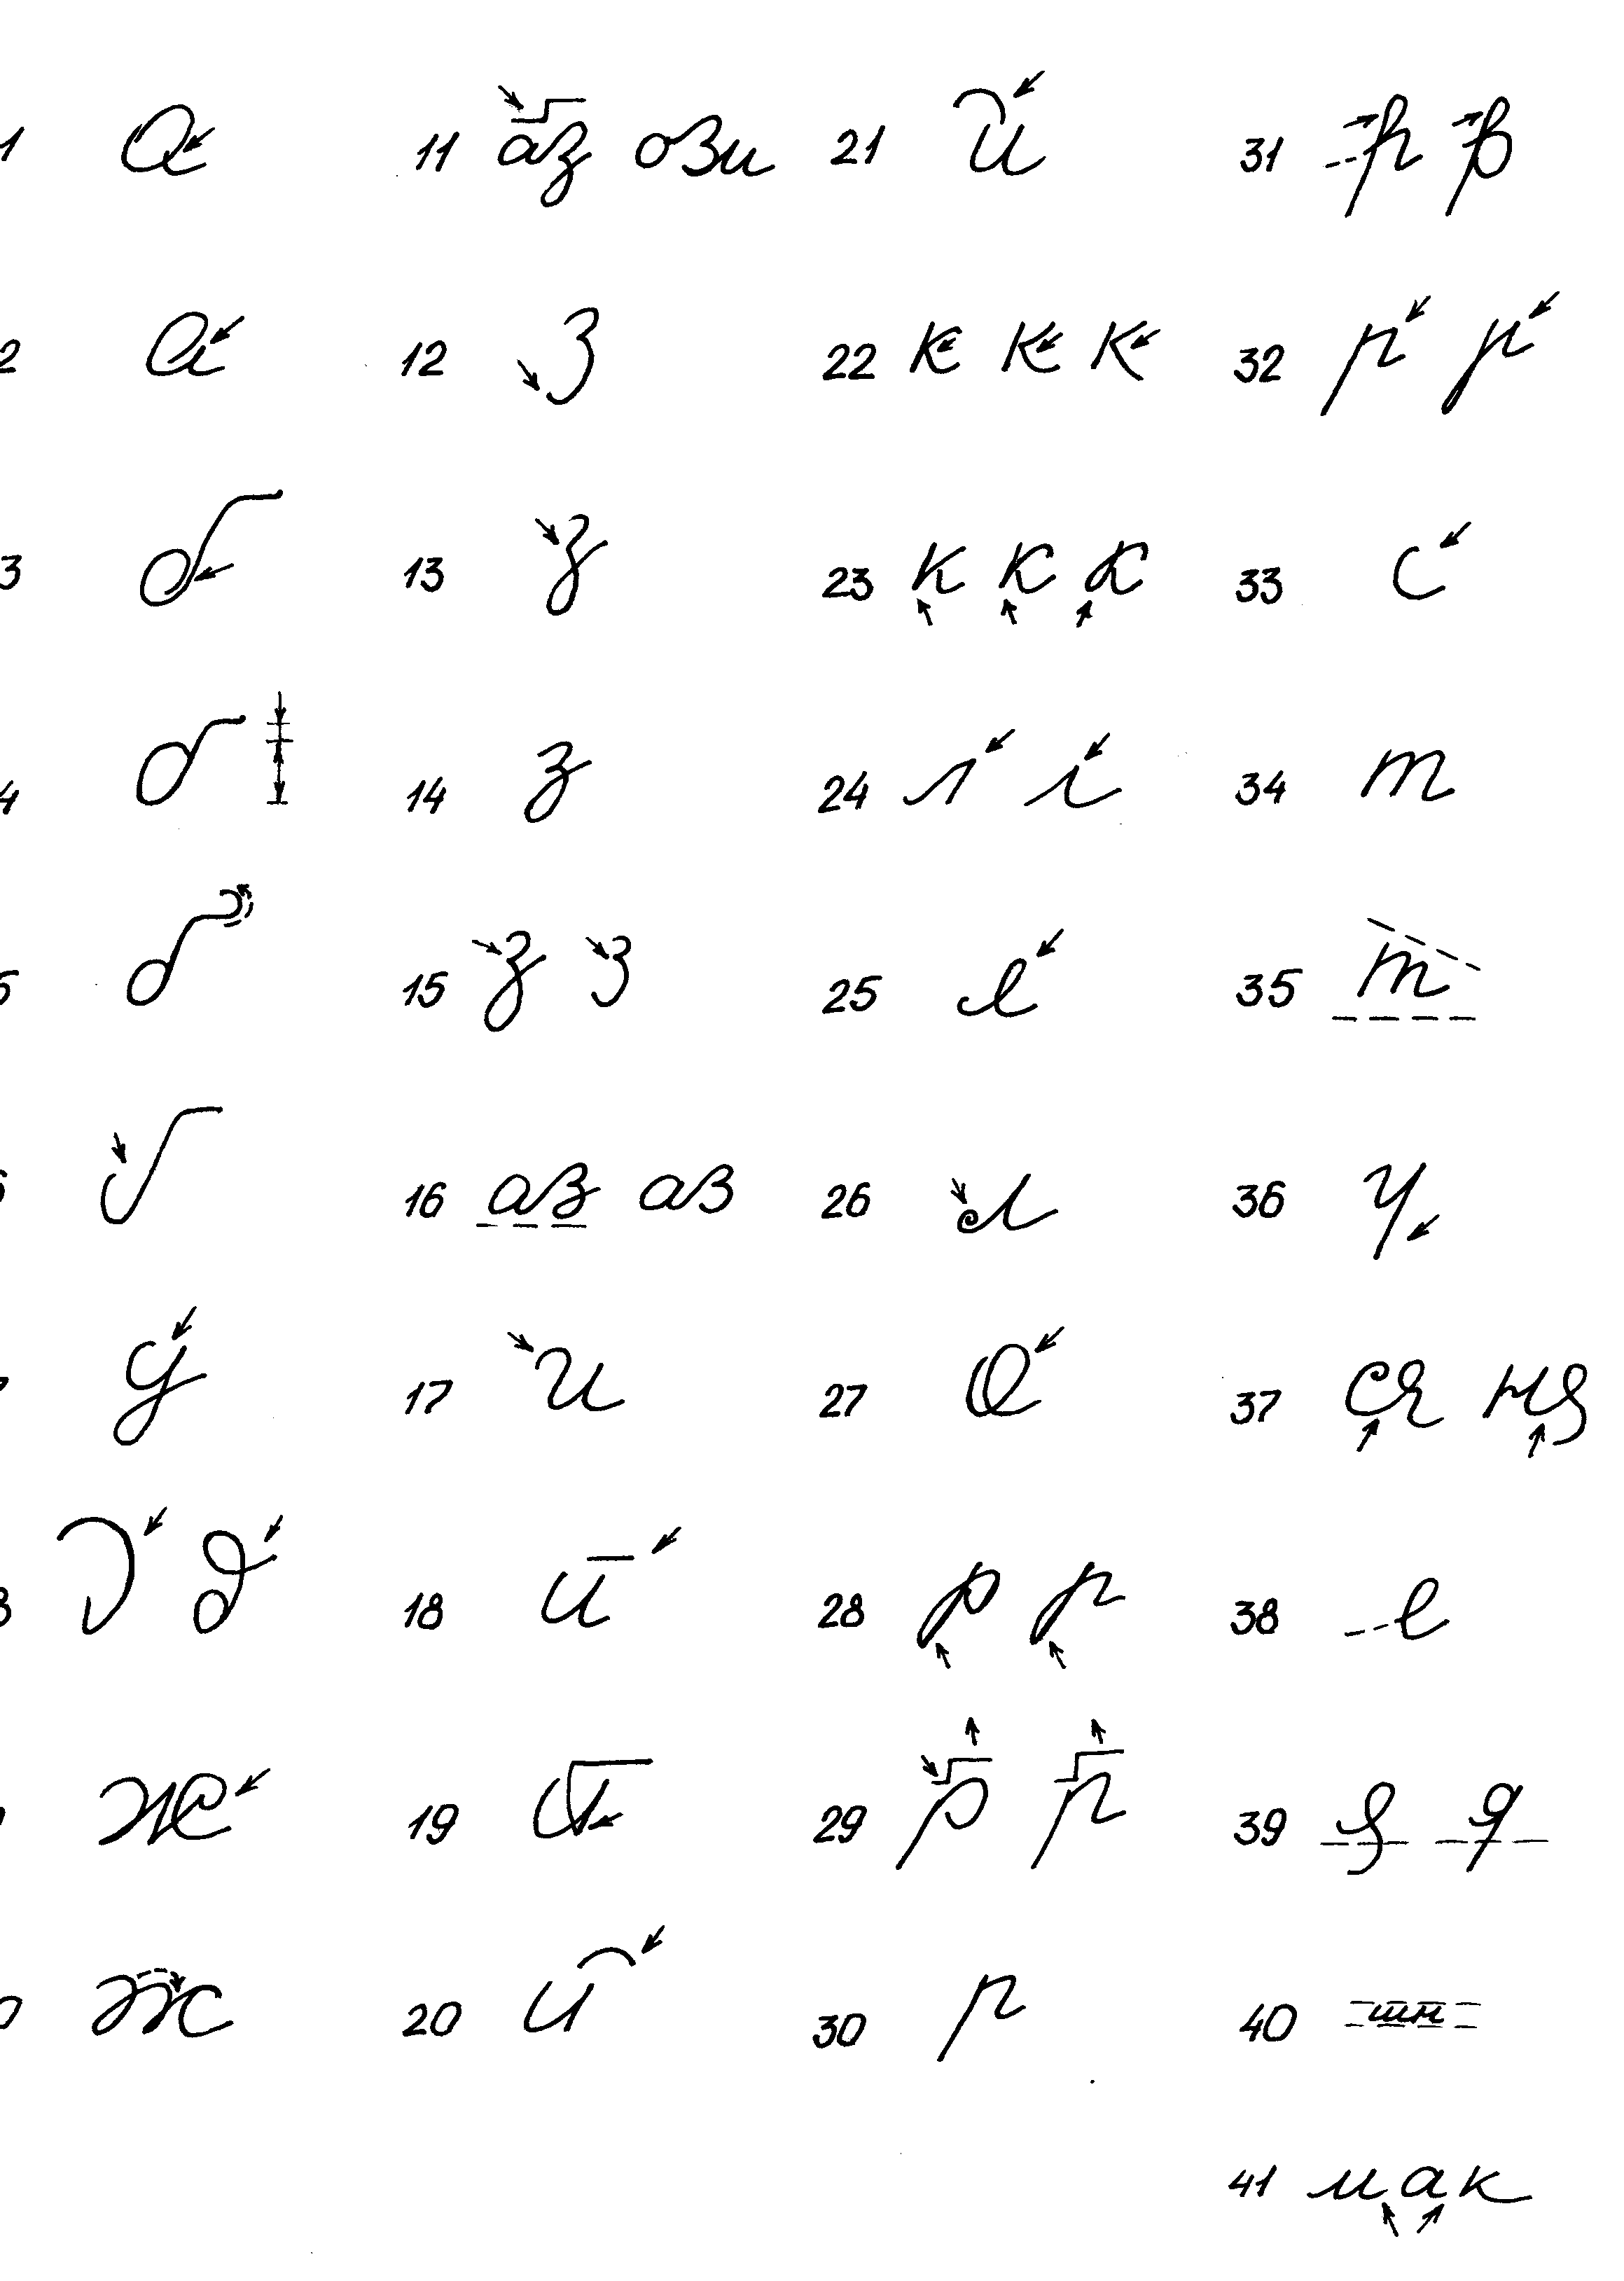 1 а 11 аз ови 21 й 31 р в
2 а 12 з 22 к к к 32 р р
3 б 13 з 23 к к к 33 с
4 б 14 з 24 л л 34 т
5 б 15 з з 25 л 35 т
6 б 16 аз аз 26 л 36 у
7 у 17 и 27 о 37 ся ня
8 д д 18 й 28 р р 38 е
9 ж 19 й 29 р р 39 я я
0 ж 20 й 30 р 40 шн
41 мак